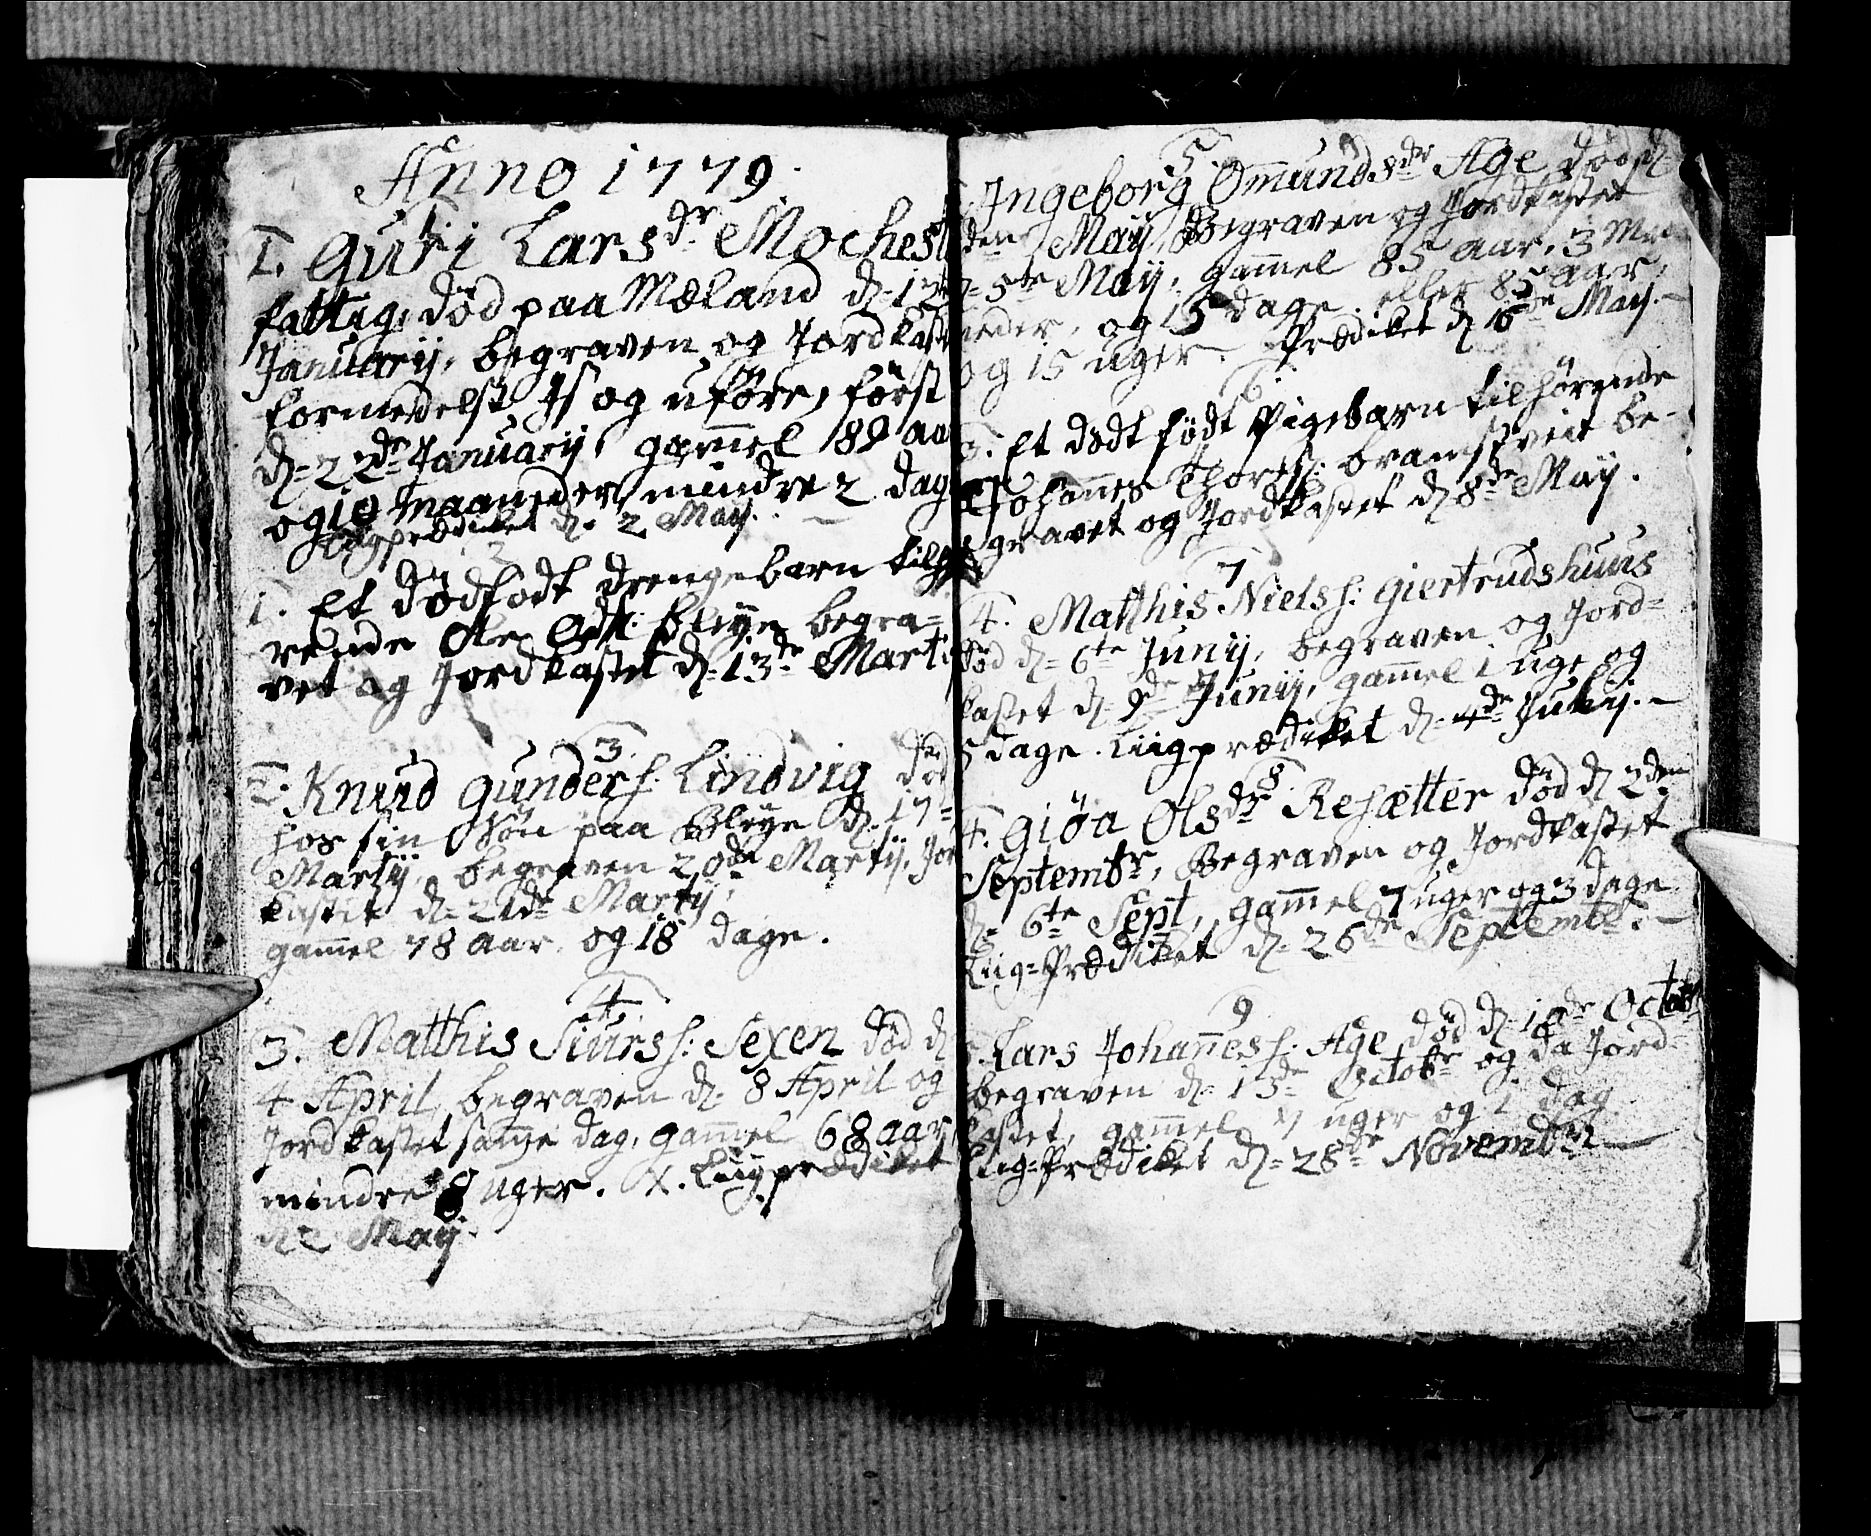 Anno 1779.
1.
1. Guri Lars dr Mochest
fattig, död paa Mæland d. 12te
Januarij, begraven og Jordkast
formedelst Is og uföre, först
d. 22de Januarij, gam̄el 82 aar
og 10 maaneder, mindre 2 dage
Liigprædiket d. 2 Maij. —
2
1. Et dödfödt drengebarn tilhö
rende Ole Bleye begra=
vet og Jordkastet d. 13de Martij
3.
2. Knud Gunders: Lindvig död
hos sin Sön paa Bleye d. 17=
Martij, begraven 20de Martij, Jor
kastit d. 21de Martij,
gam̄el 78 aar, og 18 dage.
4
3. Matthis Siurss: Sexen död d
4 April, begraven d. 8 April og
Jordkastet sam̄e dag, gam̄el 68 aar,
mindre 8 uger. X. Liigprædiket
d. 2 Maij.
5.
Ingeborg Om̄unds dr Age död d.
den Maij, Begraven og Jordkastet
d. 5te Maij, gam̄el 85 aar, 3 Maa
neder, og 15 dage. eller 85 aar,
og 15 uger. Prædiket d. 16de Maij. —
6.
3. Et dödt födt Pigebarn tilhörende
Johan̄es Thorss: bramsveit be-
gravet og Jordkastet d. 8de Maij.
7
4. Matthis Nielss: Giertrudshuus
död d. 6te Junij, begraven og Jord=
kastet d. 9de Junij, gam̄el 1 uge og
5 dage. Liigprædiket d. 4de Julij. —
8
4. Giöa Ols dr Resætter död d 2den
Septembr, Begraven og Jordkastet
d. 6te Sept, gam̄el 7 uger og 3 dage.
Liig=Prædiket d. 26de Septembr. —
9
5. Lars Johan̄ess: Age död d. 10de Octobr
begraven d. 13de Octobr og da Jord=
kastet, gam̄el 7 uger og 1 dag
Liig=Prædiket d. 28de Novembr —